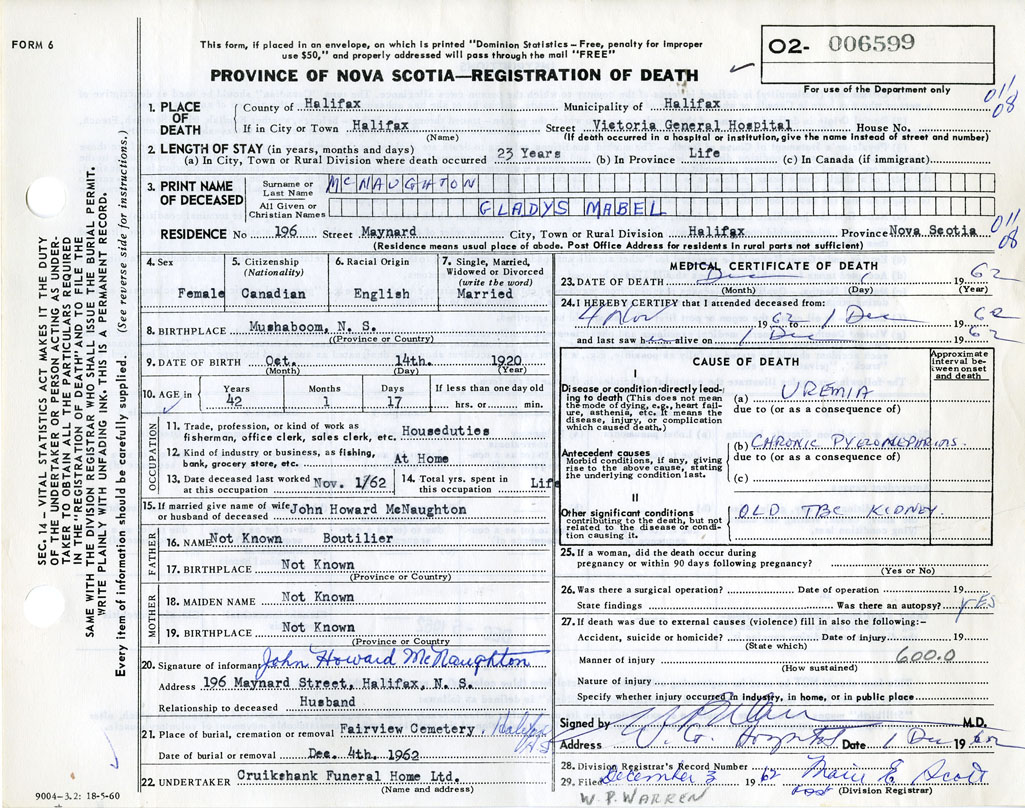 FORM 6
This form, if placed in an envelope, on which is printed "Dominion Statistics – Free, penalty for improper
use $50," and properly addressed will pass through the mail "FREE"
O2- 006599
PROVINCE OF NOVA SCOTIA—REGISTRATION OF DEATH
For use of the Department only
011
08
1. PLACE OF DEATH
County of Halifax Municipality of Halifax
If in City or Town Halifax Street Victoria General Hospital House No.
(Name) (If death occurred in a hospital or institution, give the name instead of street and number)
2. LENGTH OF STAY (in years, months and days)
(a) In City, Town or Rural Division where death occurred 23 Years (b) In Province Life (c) In Canada (if immigrant)
3. PRINT NAME OF DECEASED
Surname or Last Name McNAUGHTON
All Given or Christian Names GLADYS MABEL
011
08
RESIDENCE No 196 Street Maynard City, Town or Rural Division Halifax Province Nova Scotia
(Residence means usual place of abode. Post Office Address for residents in rural parts not sufficient)
4. Sex
Female
5. Citizenship
(Nationality)
Canadian
6. Racial Origin
English
7. Single, Married,
Widowed or Divorced
(write the word)
Married
8. BIRTHPLACE Mushaboom, N. S.
((Province or Country)
9. DATE OF BIRTH Oct. 14th. 1920
(Month) (Day) (Year)
10. AGE in
Years Months Days If less than one day old
42 1 17 hrs. or min.
OCCUPATION
11. Trade, profession, or kind of work as
fisherman, office clerk, sales clerk, etc. Houseduties
12. Kind of industry or business, as fishing,
bank, grocery store, etc. At Home
13. Date deceased last worked
at this occupation Nov. 1/62
14. Total yrs. spent
in this occupation Life
15. If married give name of wife
or husband of deceased John Howard McNaughton
FATHER
16. NAME Not Known Boutilier
17. BIRTHPLACE Not Known
(Province or Country)
MOTHER
18. MAIDEN NAME Not Known
19. BIRTHPLACE Not Known
(Province or Country
20. Signature of informant John Howard McNaughton
Address 196 Maynard Street, Halifax, N. S.
Relationship to deceased Husband
21. Place of burial, cremation or removal Fairview Cemetery, Halifax
N.S
Date of burial or removal Dec. 4th. 1962
22. UNDERTAKER Cruikshank Funeral Home Ltd.
(Name and address)
9004-3.2: 18-5-60
MEDICAL CERTIFICATE OF DEATH
23. DATE OF DEATH Dec 1962
(Month) (Day) (Year)
24. I HEREBY CERTIFY that I attended deceased from:
4 Nov 1962 to 1 Dec 1962
and last saw h alive on 1 Dec 1962
CAUSE OF DEATH
Approximate interval between onset and death
I
Disease or condition directly leading to death (This does not mean
the mode of dying, e.g., heart failure, asthenia, etc. It means the
disease, injury, or complication
which caused death.)
(a) UREMIA
due to (or as a consequence of)
Antecedent causes
Morbid conditions, if any, giving
rise to the above cause, stating
the underlying condition last.
(b) CHRONIC PYELONEPHRITIS.
due to (or as a consequence of)
(c)
II
Other significant conditions
contributing to the death, but not
related to the disease or condition causing it.
OLD TBC KIDNEY.
25. If a woman, did the death occur during
pregnancy or within 90 days following pregnancy?
(Yes or No)
26. Was there a surgical operation? Date of operation 19
State findings Was there an autopsy? YES
27. If death was due to external causes (violence) fill in also the following:-
Accident, suicide or homicide? Date of injury 19
(State which)
Manner of injury 600.0
(How sustained)
Nature of injury
Specify whether injury occurred in industry, in home, or in public place
Signed by M.D.
Address Hospital Date 1 Dec 1962
28. Division Registrar's Record Number
29. Filed December 3 1962 Marie E. Scott
(Division Registrar)
W.P. WARREN
SEC. 14 – VITAL STATISTICS ACT MAKES IT THE DUTY
OF THE UNDERTAKER OR PERSON ACTING AS UNDERTAKER TO OBTAIN ALL THE PARTICULARS REQUIRED
IN THE "REGISTRATION OF DEATH" AND TO FILE THE
SAME WITH THE DIVISION REGISTRAR WHO SHALL ISSUE THE BURIAL PERMIT.
WRITE PLAINLY WITH UNFADING INK. THIS IS A PERMANENT RECORD.
Every item of information should be carefully supplied. (See reverse side for instructions.)